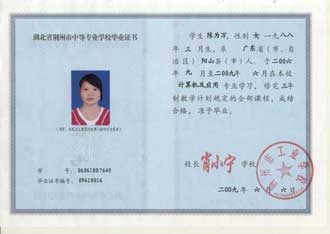 湖北省荆州市中等专业学校毕业证书
学 号： 06061887649
毕业证书编号： 09418016
学生 陈为万，性别 女 一九八八
年 三 月生，系 广东省（市、自
治区） 阳山县（市）人。于二00六
年 九 月至二00九年 六月在本校
计算机及应用 专业学习，修完三年
制教学计划规定的全部课程，成绩
合格，准予毕业。
校长 肖小宁 学校
二00九年 六 月 六 日